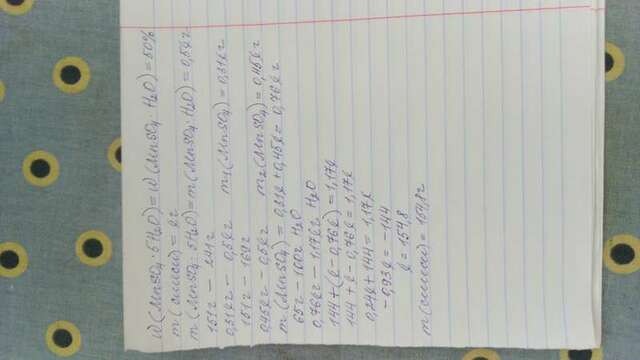 W(MnSO₄·5H₂O)=W(MnSO₄·H₂O)=50%
m(смеси)=lг
m(MnSO₄·5H₂O)=m(MnSO₄·H₂O)=0,5lг
151г – 241г
0,31lг – 0,5lг m₁(MnSO₄)=0,31lг
151г – 169г
0,45lг – 0,5lг m₂(MnSO₄)=0,45lг
m(MnSO₄)=0,31l+0,45l=0,76lг
65г – 100г H₂O
0,76lг – 1,17lг H₂O
144+(l-0,76l)=1,17l
144+l-0,76l=1,17l
0,24l+144=1,17l
-0,93l=-144
l=154,8
m(смеси)=154,8г